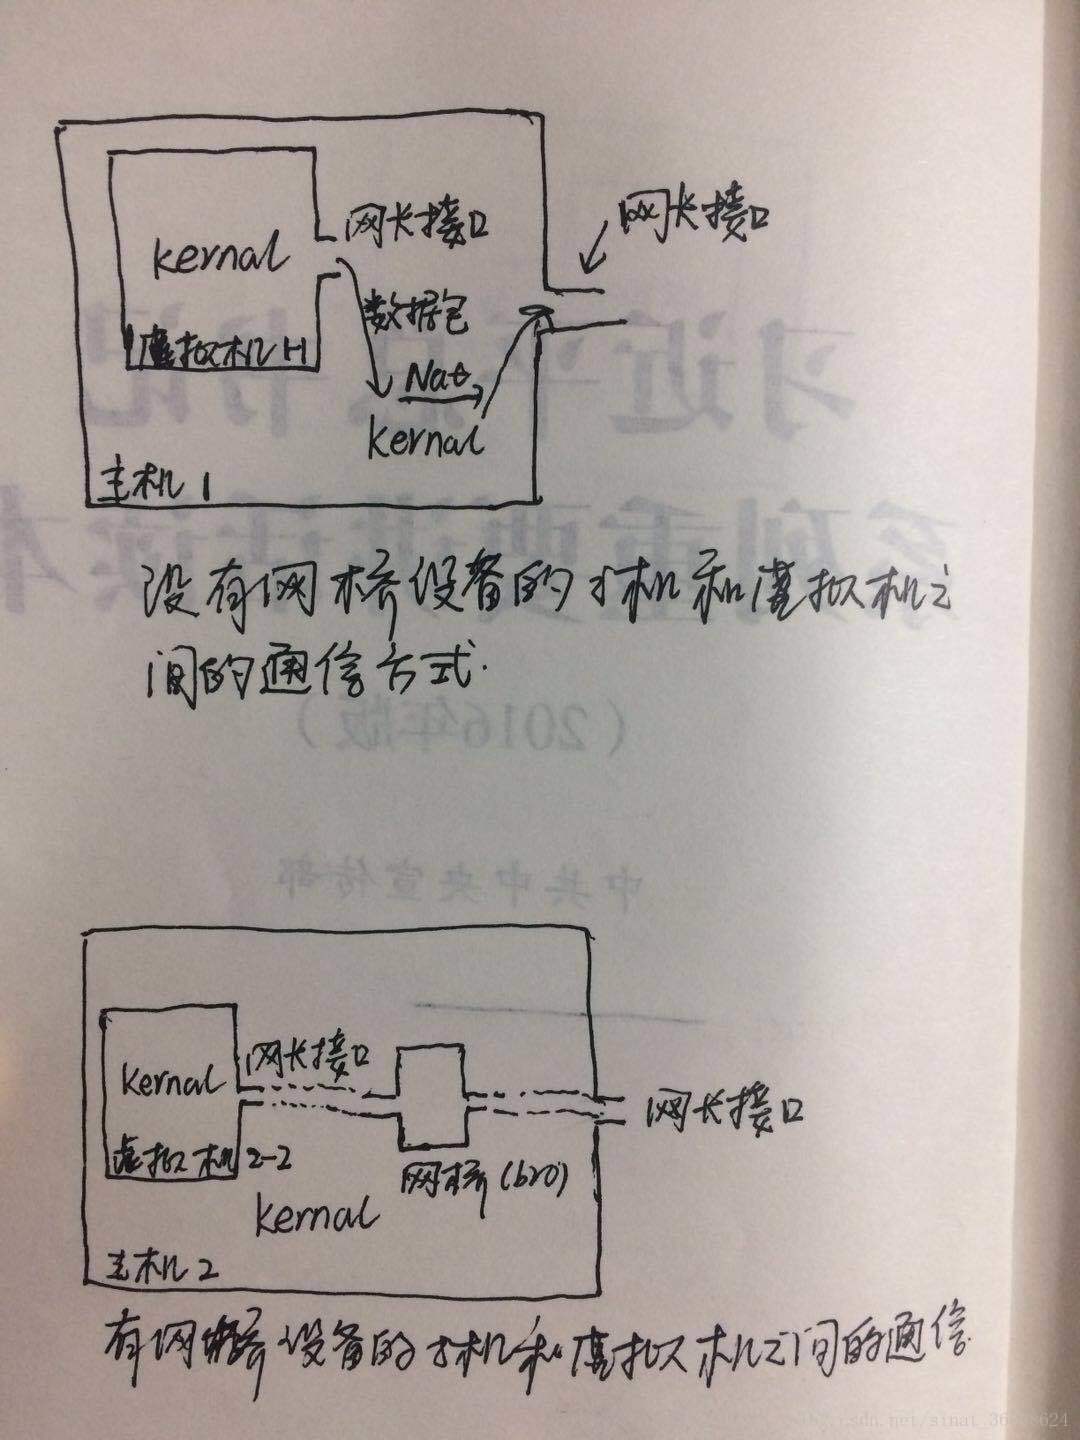 网卡接口
网卡接口
kernal
数据包
虚拟机1-1
Nat
kernal
主机1
没有网桥设备的主机和虚拟机之
间的通信方式.
习近平总书记
系列重要讲话读本
(2016年版)
中共中央宣传部
网卡接口
kernal
网卡接口
虚拟机2-2
网桥(br0)
kernal
主机2
有网桥设备的主机和虚拟机之间的通信